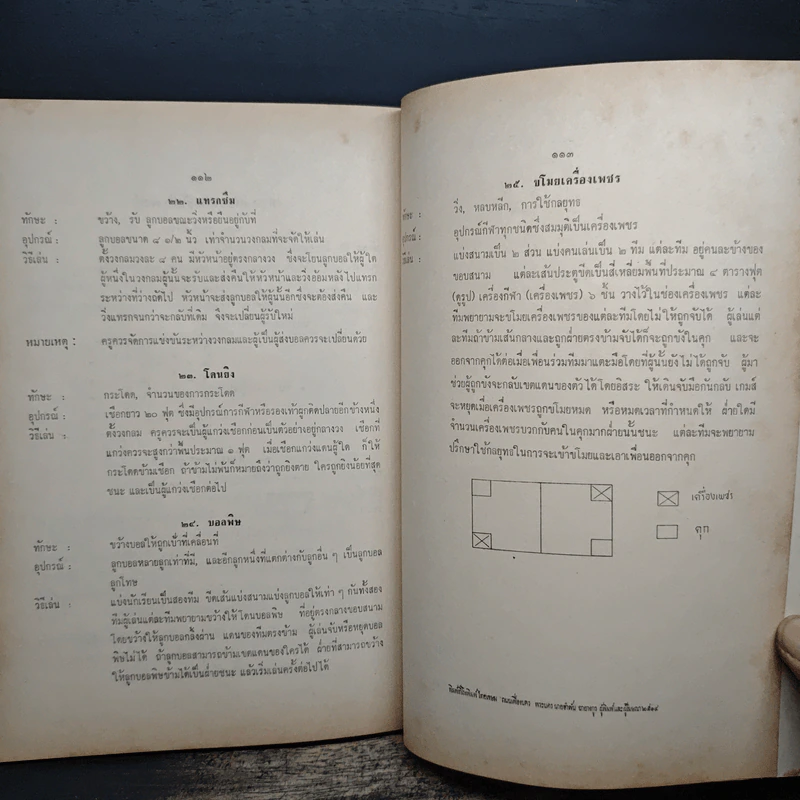 ๑๑๒
๒๒. แทรกซึม
ทักษะ : ขว้าง, รับ ลูกบอลขณะวิ่งหรือยืนอยู่กับที่
อุปกรณ์ : ลูกบอลขนาด ๘ ๑/๒ นิ้ว เท่าจำนวนวงกลมที่จะจัดให้เล่น
วิธีเล่น : ตั้งวงกลมวงละ ๘ คน มีหัวหน้าอยู่ตรงกลางวง ซึ่งจะโยนลูกบอลให้ผู้ใด
ผู้หนึ่งในวงกลมผู้นั้นจะรับและส่งคืนให้หัวหน้าและวิ่งอ้อมหลังไปแทรก
ระหว่างที่ว่างถัดไป หัวหน้าจะส่งลูกบอลให้ผู้นั้นอีกซึ่งจะต้องส่งคืน และ
วิ่งแทรกจนกว่าจะกลับที่เดิม จึงจะเปลี่ยนผู้รับใหม่
หมายเหตุ : ครูควรจัดการแข่งขันระหว่างวงกลมและผู้เป็นผู้ส่งบอลควรจะเปลี่ยนด้วย
๒๓. โดนยิง
ทักษะ : กระโดด, จำนวนของการกระโดด
อุปกรณ์ : เชือกยาว ๒๐ ฟุต ซึ่งมีอุปกรณ์การกีฬาหรือรองเท้าผูกติดปลายอีกข้างหนึ่ง
วิธีเล่น : ตั้งวงกลม ครูควรจะเป็นผู้แกว่งเชือกก่อนเป็นตัวอย่างอยู่กลางวง เชือกที่
แกว่งควรจะสูงกว่าพื้นประมาณ ๑ ฟุต เมื่อเชือกแกว่งแดนผู้ใด ก็ให้
กระโดดข้ามเชือก ถ้าข้ามไม่พ้นก็หมายถึงว่าถูกยิงตาย ใครถูกยิงน้อยที่สุด
ชนะ และเป็นผู้แกว่งเชือกต่อไป
๒๔. บอลพิษ
ทักษะ : ขว้างบอลให้ถูกเป้าที่เคลื่อนที่
อุปกรณ์ : ลูกบอลหลายลูกเท่าที่มี, และอีกลูกหนึ่งที่แตกต่างกับลูกอื่น ๆ เป็นลูกบอล
ลูกโทษ
วิธีเล่น : แบ่งนักเรียนเป็นสองทีม ขีดเส้นแบ่งสนามแบ่งลูกบอลให้เท่า ๆ กันทั้งสอง
ทีมผู้เล่นแต่ละทีมพยายามขว้างให้โดนบอลพิษ ที่อยู่ตรงกลางขอบสนาม
โดยขว้างให้ลูกบอลกลิ้งผ่าน แดนของทีมตรงข้าม ผู้เล่นจับหรือหยุดบอล
พิษไม่ได้ ถ้าลูกบอลสามารถข้ามเขตแดนของใครได้ ฝ่ายที่สามารถขว้าง
ให้ลูกบอลพิษข้ามได้เป็นฝ่ายชนะ แล้วเริ่มเล่นครั้งต่อไปได้
๑๑๓
๒๕. ขโมยเครื่องเพชร
ทักษะ : วิ่ง, หลบหลีก, การใช้กลยุทธ
อุปกรณ์ : อุปกรณ์กีฬาทุกชนิดซึ่งสมมุติเป็นเครื่องเพชร
วิธีเล่น : แบ่งสนามเป็น ๒ ส่วน แบ่งคนเล่นเป็น ๒ ทีม แต่ละทีม อยู่คนละข้างของ
ขอบสนาม แต่ละเส้นประตูขีดเป็นสี่เหลี่ยมพื้นที่ประมาณ ๔ ตารางฟุต
(ดูรูป) เครื่องกีฬา (เครื่องเพชร) ๖ ชิ้น วางไว้ในช่องเครื่องเพชร แต่ละ
ทีมพยายามจะขโมยเครื่องเพชรของแต่ละทีมโดยไม่ให้ถูกจับได้ ผู้เล่นแต่
ละทีมถ้าข้ามเส้นกลางและถูกฝ่ายตรงข้ามจับได้ก็จะถูกขังในคุก และจะ
ออกจากคุกได้ต่อเมื่อเพื่อนร่วมทีมมาแตะมือโดยที่ผู้นั้นยังไม่ได้ถูกจับ ผู้มา
ช่วยผู้ถูกขังจะกลับเขตแดนของตัวได้โดยอิสระ ให้เดินจับมือกันกลับ เกมส์
จะหยุดเมื่อเครื่องเพชรถูกขโมยหมด หรือหมดเวลาที่กำหนดให้ ฝ่ายใดมี
จำนวนเครื่องเพชรบวกกับคนในคุกมากฝ่ายนั้นชนะ แต่ละทีมจะพยายาม
ปรึกษาใช้กลยุทธในการจะเข้าขโมยและเอาเพื่อนออกจากคุก
เครื่องเพชร
คุก